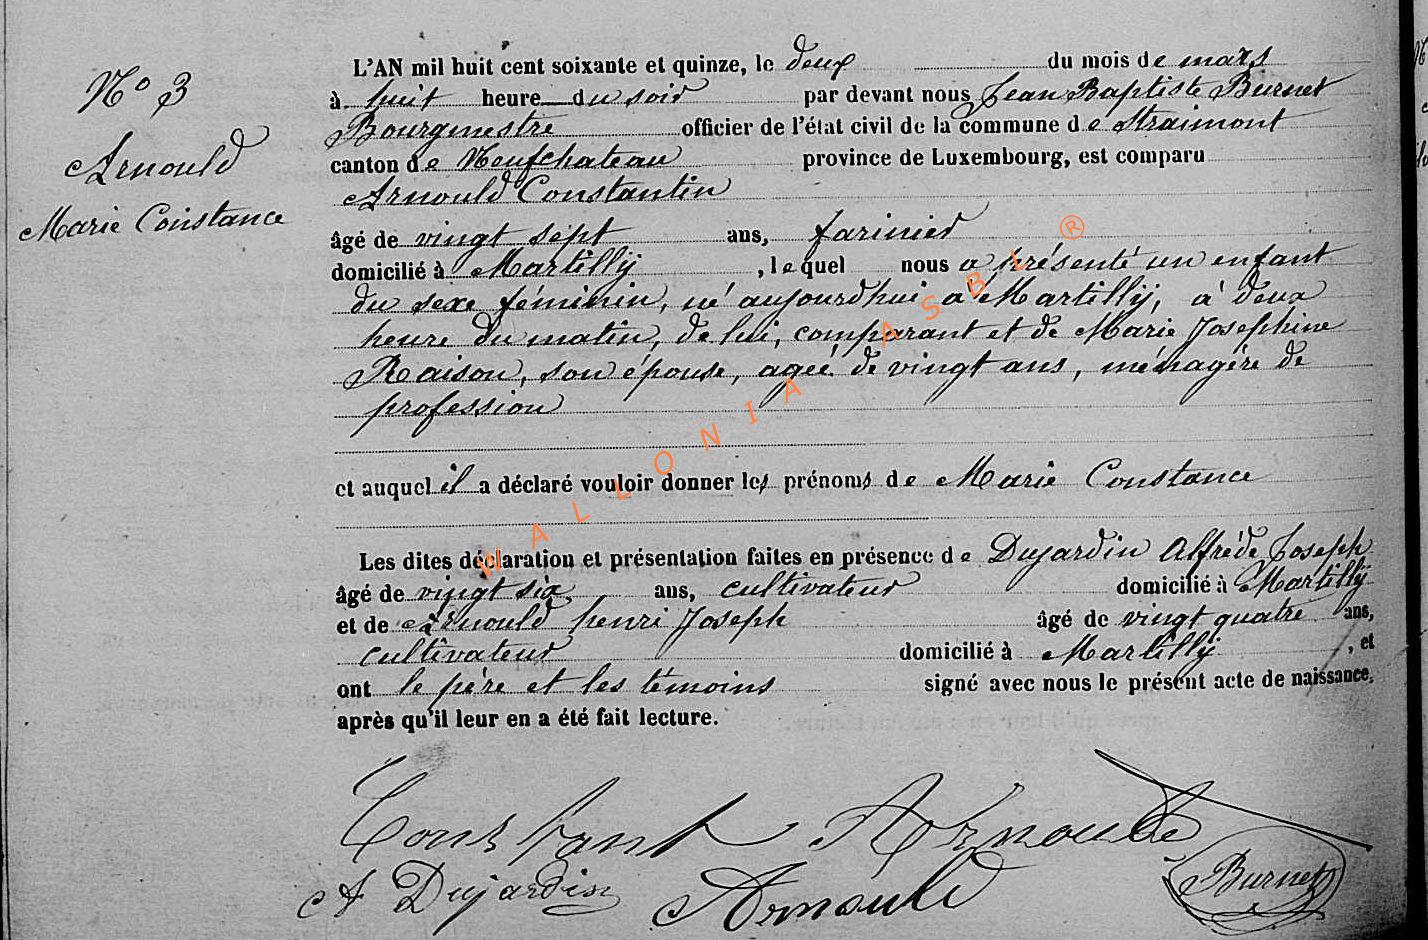 N° 3
Arnould
Marie Constance
L'AN mil huit cent soixante et quinze, le deux du mois de mars
à huit heure du soir par devant nous Jean Baptiste Burnet
Bourgmestre officier de l'état civil de la commune de Straimont
canton de Neufchateau province de Luxembourg, est comparu
Arnould Constantin
âgé de vingt sept ans, farinier
domicilié à Martilly, lequel nous a présenté un enfant
du sexe féminin, né aujourdhui à Martilly, à deux
heure du matin, de lui, comparant et de Marie Josephine
Raison, son épouse, agéé de vingt ans, ménagère de
profession
et auquel il a déclaré vouloir donner les prénoms de Marie Constance
Les dites déclaration et présentation faites en présence de Dujardin Alfréde Joseph
âgé de vingt six ans, cultivateur domicilié à Martilly
et de Arnould henri Joseph âgé de vingt quatre ans,
cultivateur domicilié à Martilly, et
ont le père et les témoins signé avec nous le présent acte de naissance,
après qu'il leur en a été fait lecture.
Constant Arnould
A Dujardin Arnould Burnet
WALLONIA ASBL ®